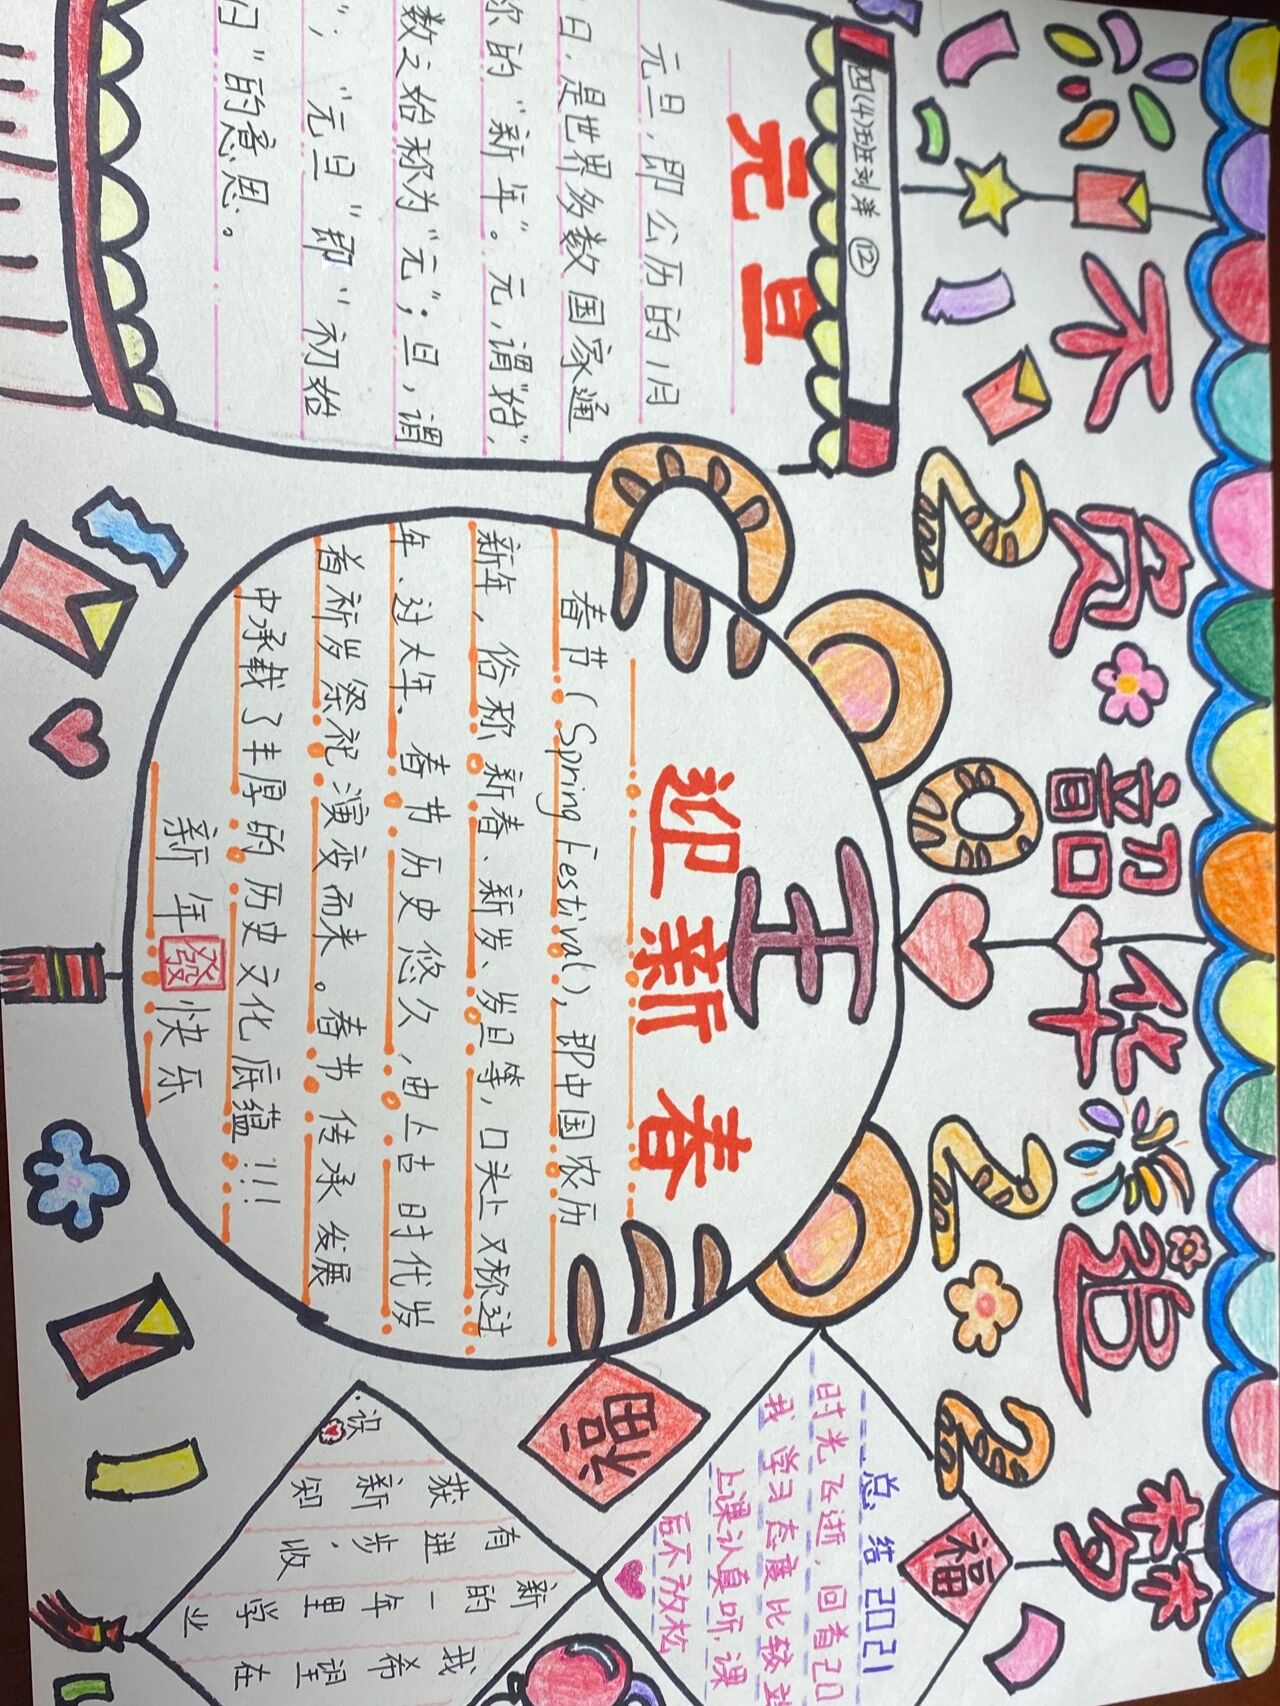 不负韶华追梦
2022
四(4)班刘洋 ⑫
元旦
元旦,即公历的1月
日,是世界多数国家通
称的“新年”。元,谓“始”,
数之始称为“元”;旦,谓
”;“元旦”即“初始
日”的意思。
王
迎新春
春节(Spring Festival),即中国农历
新年,俗称新春、新岁、岁旦等,口头上又称过
年、过大年。春节历史悠久,由上古时代岁
首祈岁祭祀演变而来。春节传承发展
中承载了丰厚的历史文化底蕴!!!
新年發快乐
福
福
总结2021
时光飞逝,回首20
我学习态度比较
上课认真听,课
后不放松
我希望在
新的一年里学业
有进步,收
获新知
识